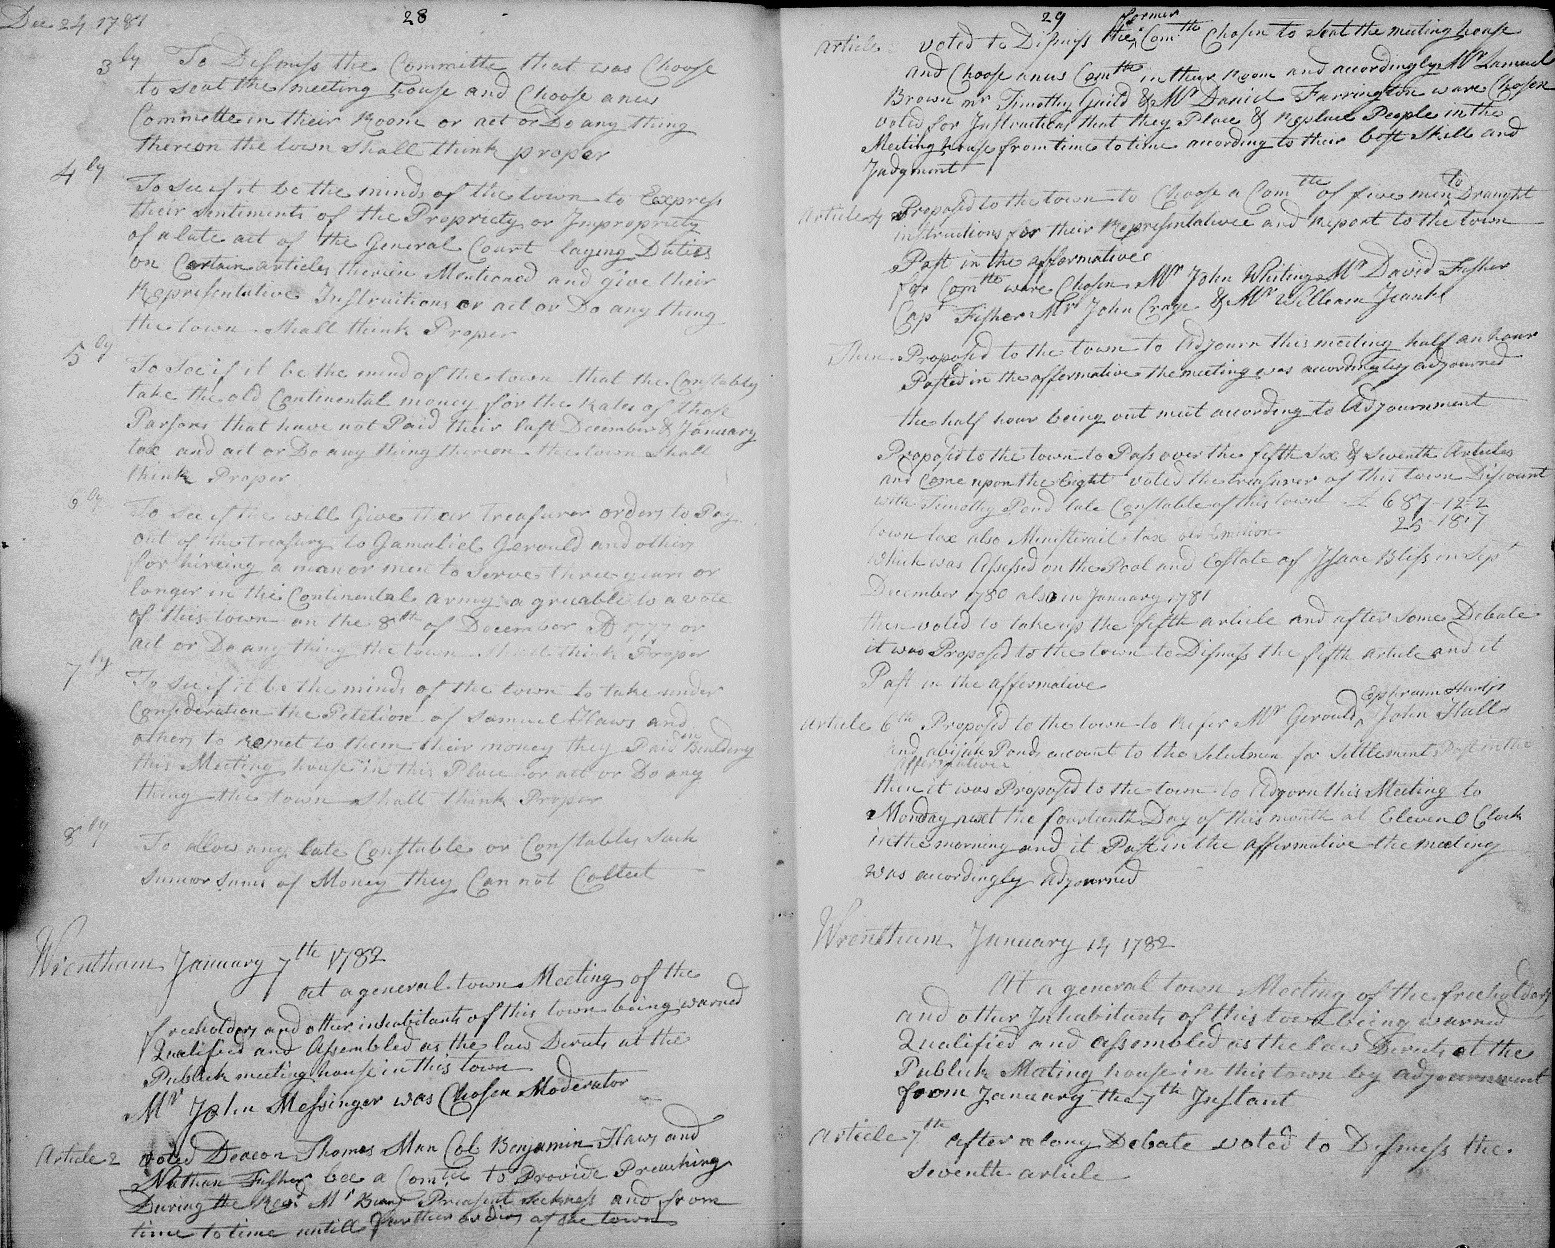 Dec 24 1781
28
3ly To Dismiss the Committe that was Choose
to seat the meeting house and Choose a new
Committe in their Room or act or Do any thing
thereon the town shall think proper
4ly To see if it be the minds of the town to Express
their Sentiments of the Propriety or Impropriety
of a late act of the General Court laying Duties
on Certain articles therein Mentioned and give their
Representative Instructions or act or Do any thing
the town shall think Proper
5ly To See if it be the mind of the town that the Constables
take the old Continental money for the Rates of those
Parsons that have not Paid their last December & January
tax and act or Do any thing thereon the town Shall
think Proper
6ly To see if the will Give their Treasurer orders to Pay
out of the treasury to Gamaliel Gerould and others
for hireing a man or men to Serve three years or
longer in the Continental army agreable to a vote
of this town on the 8th of December AD 1777 or
act or Do any thing the town Shall think Proper
7ly To see if it be the minds of the town to take under
Consideration the Petetion of Samuel Haws and
others to Remet to them their money they Paid in Building
this Meeting house in this Place or act or Do any
thing the town Shall think Proper
8ly To allow any late Constable or Constables Such
Sum or Sums of Money they Can not Collect
Wrentham January 7th 1782
at a general town Meeting of the
freeholders and other inhabitants of this town being warned
Qualified and Assembled as the law Deructs at the
Publick meeting house in this town
Mr John Messinger was Chosen Moderator
Article 2 voted Deacon Thomas Man Col Benjamin Haws and
Nathan Fisher be a Comtte to Provide Preaching
During the Revd Mr Present Sickness and from
time to time untill further orders of the town
29
Article voted to Dismiss the former Comtte Chosen to seat the meeting house
and Choose a new Comtte in their Room and accordingly Mr Samuel
Brown mr Timothy Guild & Mr Daniel Farrington ware Chosen
voted for Instructions that they Place & Replace People in the
Meeting house from time to time according to their best Skill and
Judgment
Article 4 Proposed to the town to Choose a Comtte of five men to Draught
instructions for their Representative and Report to the town
Past in the affermative
for Comtte ware Chosen Mr John Whiting Mr David Fisher
Capt Fisher Mr John Crage & Mr William Jeanks
Then Proposed to the town to Adjourn this meeting half an hour
Pasted in the affermative the meeting was accordingly adjourned
the half hour being out meet according to Adjournment
Proposed to the town to Pass over the fifth Six & Seventh Articles
and Come upon the Eight voted the treasurer of this town Discount
with Timothy Pond late Constable of this town £ 687-12-2
town tax also Ministerail tax old Emition 25-18-7
which was Assessed on the Pool and Estate of Isaac Bliss in Sept
December 1780 also in January 1781
then voted to take up the fifth article and after some Debate
it was Proposed to the town to Dismiss the fifth article and it
Past in the affermative
Article 6th Proposed to the town to Refer Mr Gerould Ephraim Hunts John Hall
and abijah Ponds account to the Selectmen for Settlement Past in the
affermative
then it was Proposed to the town to Adjorn this Meeting to
Monday next the fourteenth Day of this month at Eleven O Clock
in the morning and it Past in the affermative the meeting
was accordingly adjourned
Wrentham January 14 1782
At a general town Meeting of the freeholders
and other Inhabitants of this town being warned
Qualified and assembled as the law Deructs at the
Publick Meeting house in this town by adjournment
from January the 7th Instant
Article 7th after a long Debate voted to Dismiss the
Seventh article